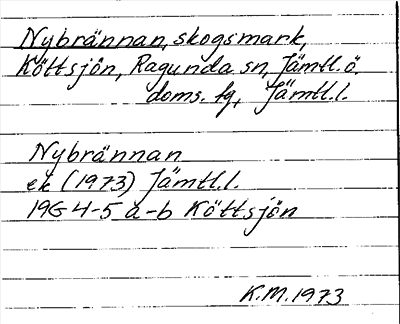 Nybrännan, skogsmark,
Köttsjön, Ragunda sn, Jämtl.ö.
doms. fg, Jämtl.l.
Nybrännan
ek (1973) Jämtl.l.
19G 4-5 a-b Köttsjön
K.M. 1973